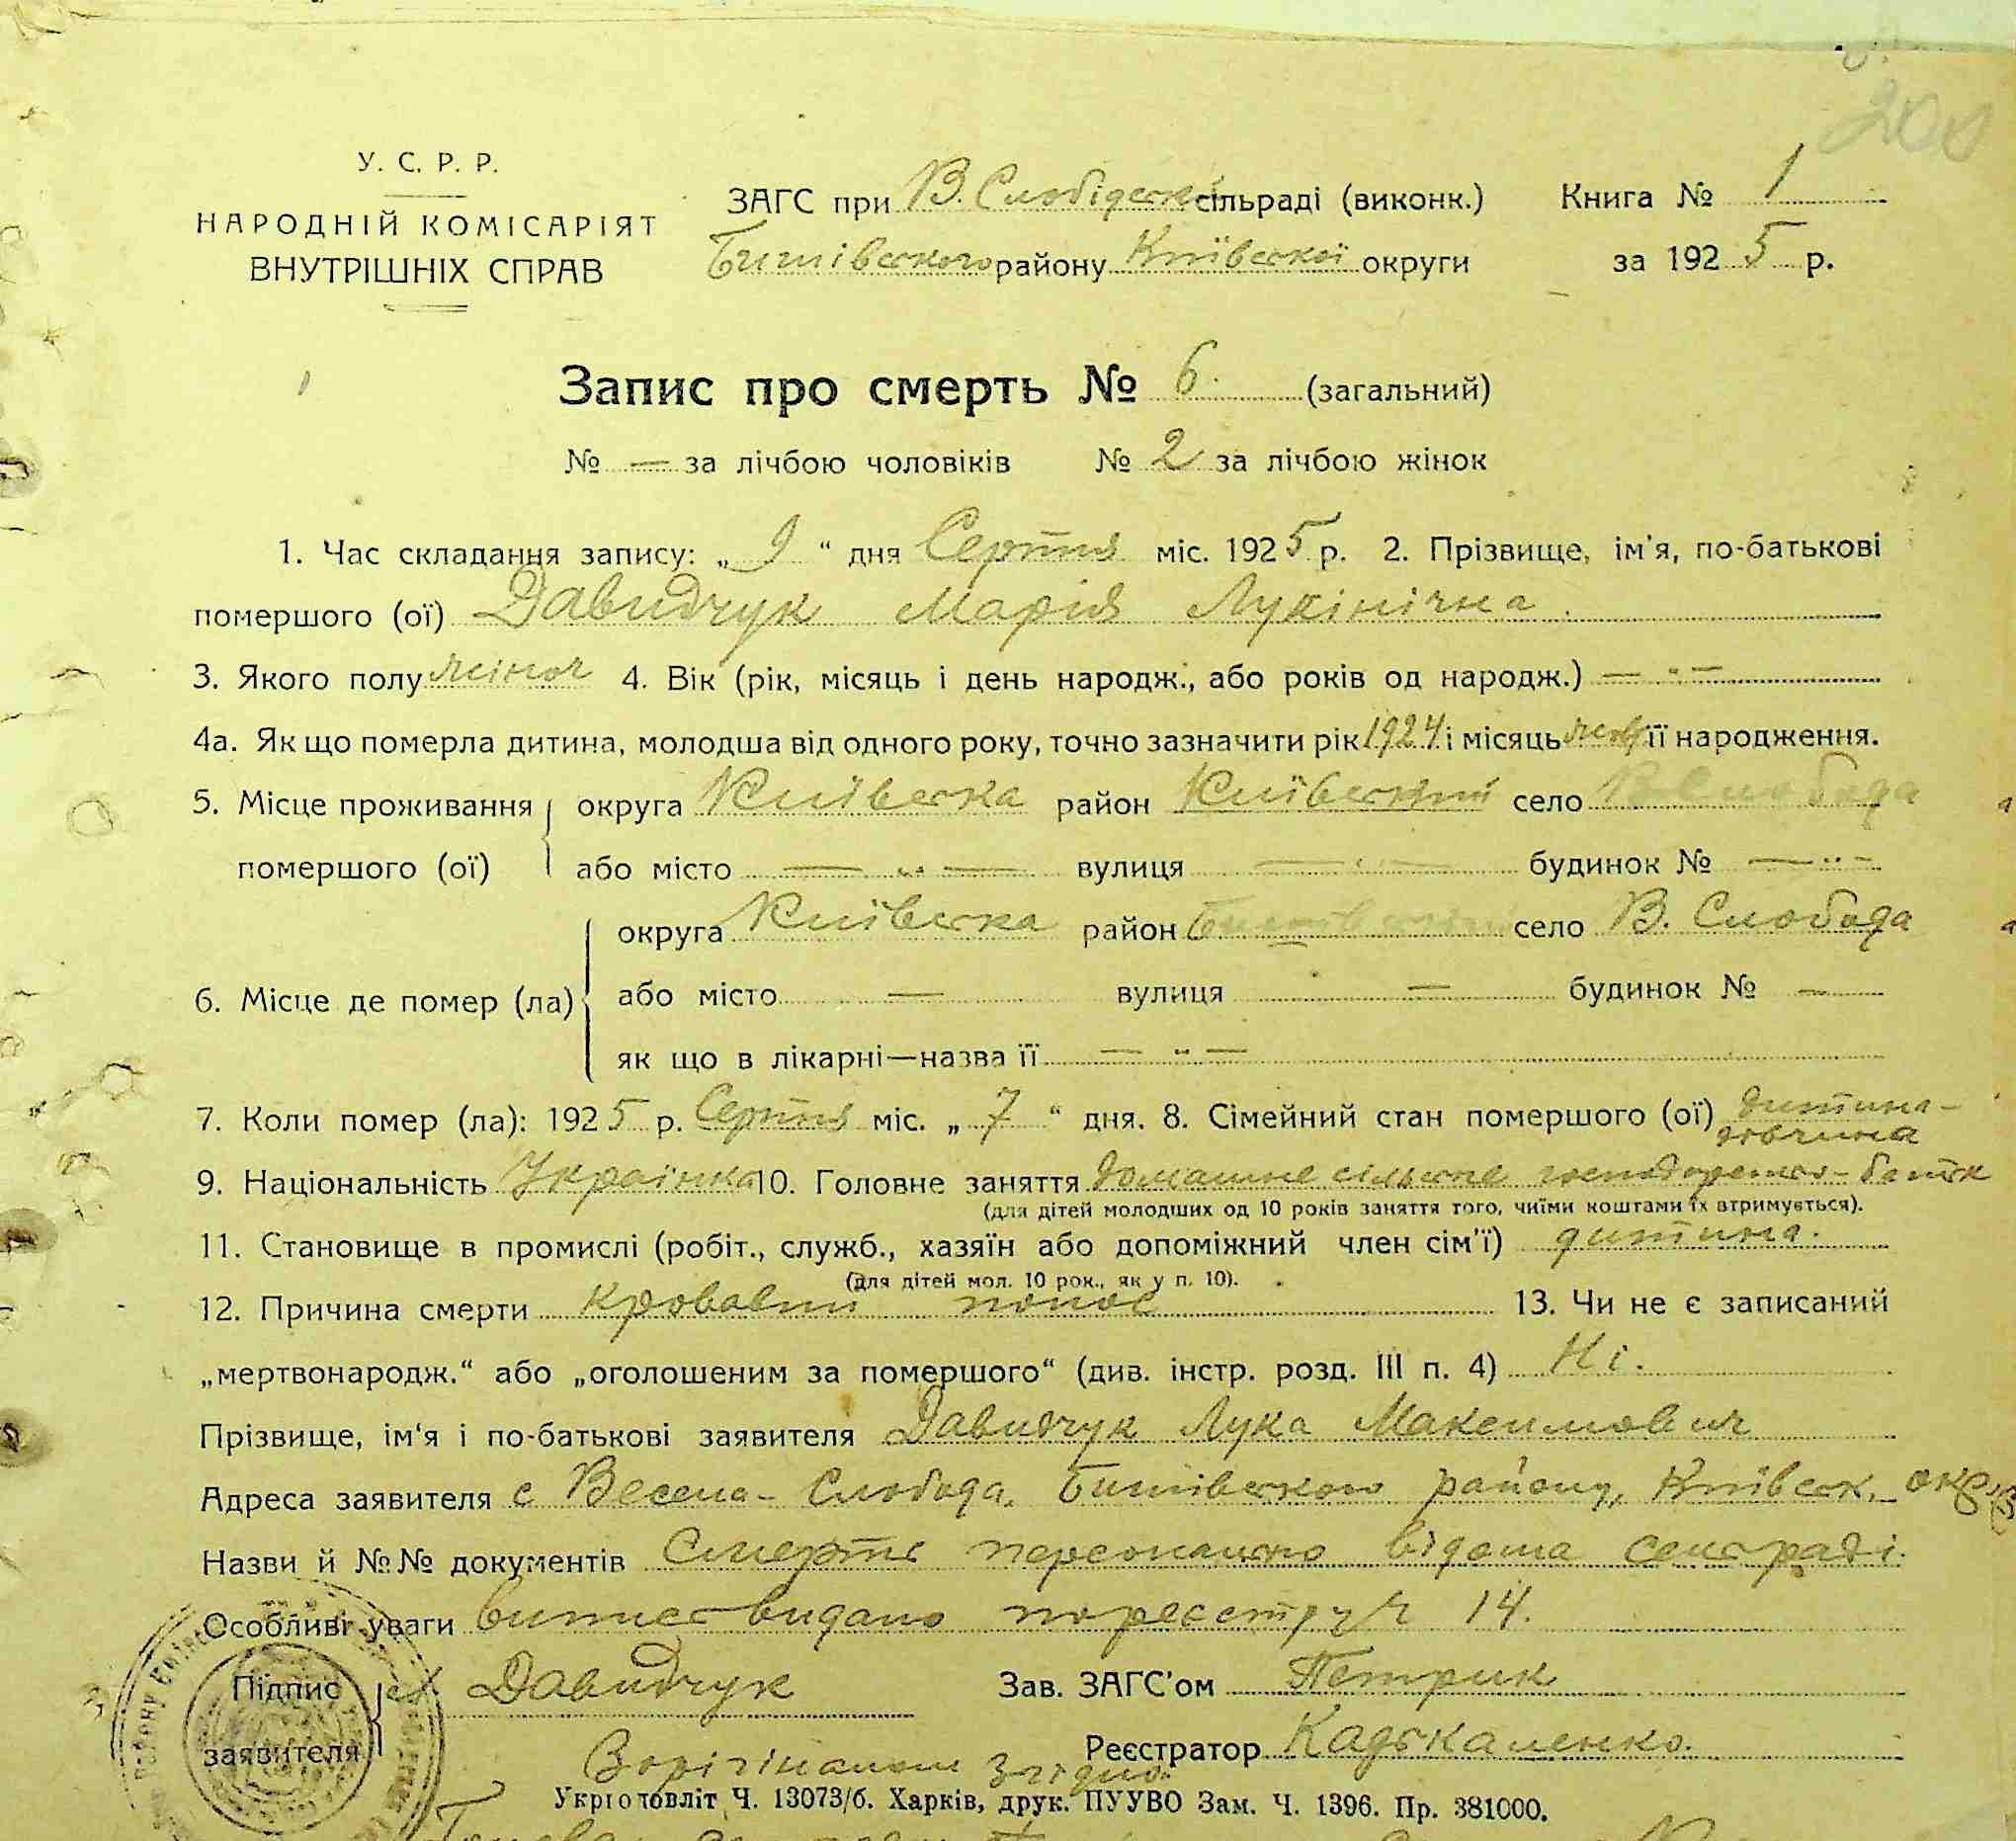 200
У. С. Р. Р.
НАРОДНІЙ КОМІСАРІЯТ
ВНУТРІШНІХ СПРАВ
ЗАГС при В. Слобідській сільраді (виконк.) Книга № 1
Бишівського району Київської округи за 1925 р.
Запис про смерть № 6. (загальний)
№ — за лічбою чоловіків № 2 за лічбою жінок
1. Час складання запису: „ 9 “ дня Серпня міс. 1925 р. 2. Прізвище, ім'я, по-батькові
помершого (ої) Давидчук Марія Лукінічна.
3. Якого полу жіноч 4. Вік (рік, місяць і день народж., або років од народж.) — „ —
4а. Як що померла дитина, молодша від одного року, точно зазначити рік 1924 і місяць її народження.
5. Місце проживання округа Київська район Київський село В Слобода
помершого (ої) або місто — „ — вулиця — „ — будинок № — „ —
округа Київська район Бишівський село В. Слобода
6. Місце де помер (ла) або місто — вулиця — будинок № —
як що в лікарні—назва її — „ —
7. Коли помер (ла): 1925 р. Серпня міс. „ 7 “ дня. 8. Сімейний стан помершого (ої) дитина-
дівчина
9. Національність Українка 10. Головне заняття домашнє сільське господарство-батьк
(для дітей молодших од 10 років заняття того, чиїми коштами їх втримується).
11. Становище в промислі (робіт., служб., хазяїн або допоміжний член сім'ї) дитина.
(для дітей мол. 10 рок., як у п. 10).
12. Причина смерти кровавий понос 13. Чи не є записаний
„мертвонародж.“ або „оголошеним за помершого“ (див. інстр. розд. III п. 4) Ні.
Прізвище, ім'я і по-батькові заявителя Давидчук Лука Максимович
Адреса заявителя с Весела-Слобода, Бишівського району, Київськ. окр.
Назви й №№ документів Смерть персонально відома сельраді.
Особливі уваги витяг видано по реєстру ч 14.
Підпис Давидчук Зав. ЗАГС'ом Петрик
заявителя Реєстратор Кадькаленко.
З орігіналом згідно:
Укрголовліт Ч. 13073/б. Харків, друк. ПУУВО Зам. Ч. 1396. Пр. 381000.